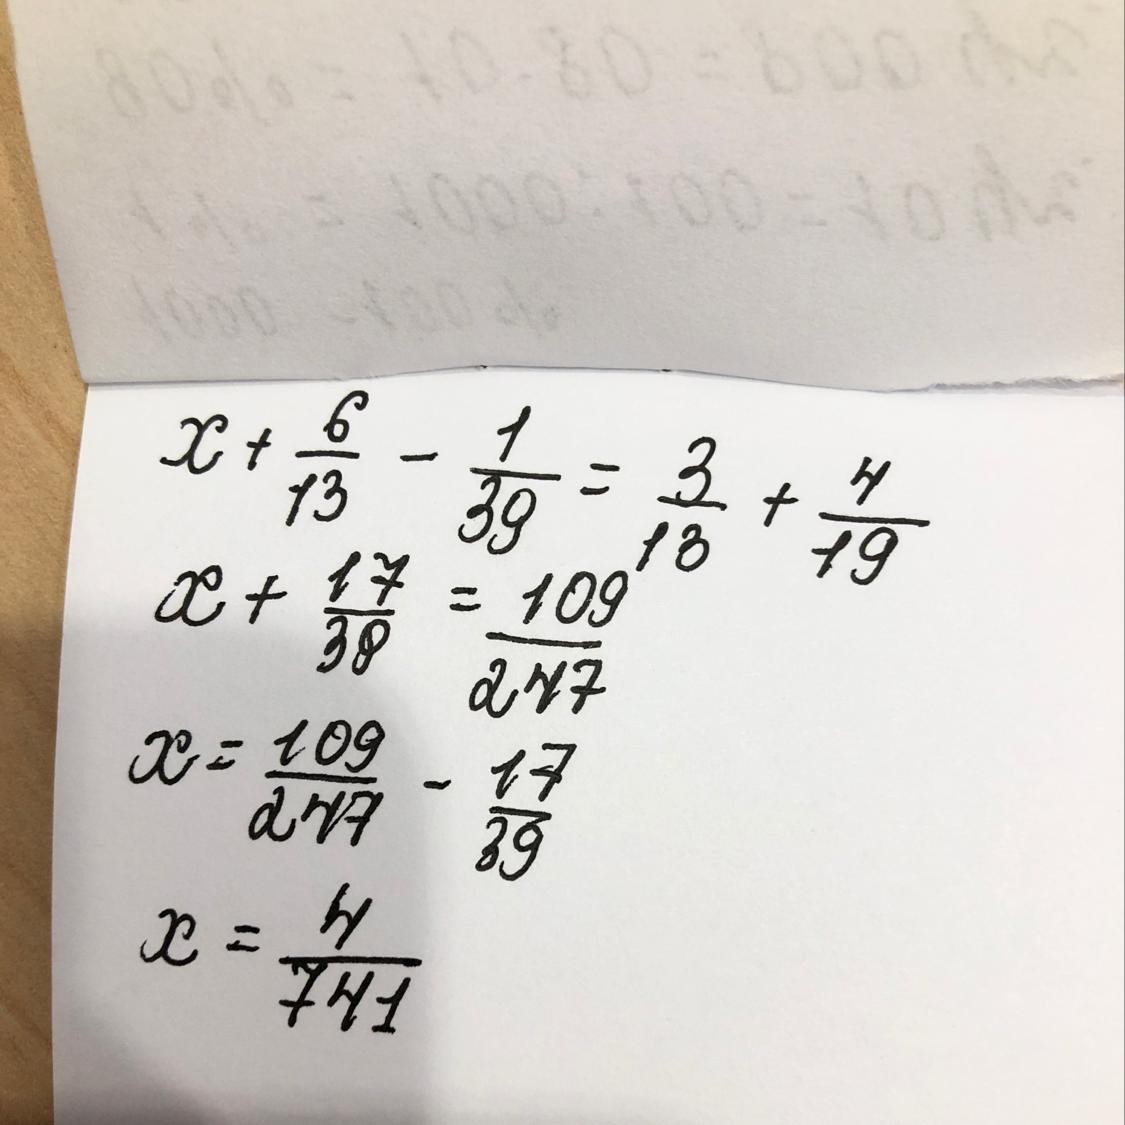 x + 6/13 - 1/39 = 3/13 + 4/19
x + 17/39 = 109/247
x = 109/247 - 17/39
x = 4/741